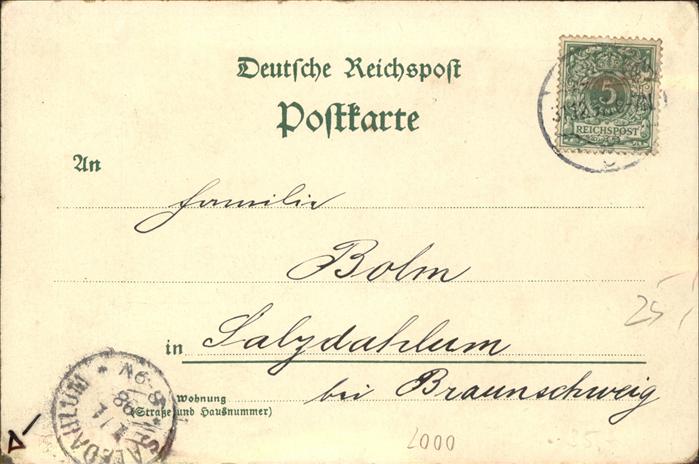 Deutsche Reichspost
Postkarte
5
REICHSPOST
An
Familie
Bolm
in Salzdahlum
bei Braunschweig
Wohnung
(Straße und Hausnummer)
SALZDAHLUM
1/1
98
8-9V
25
2000
35.-